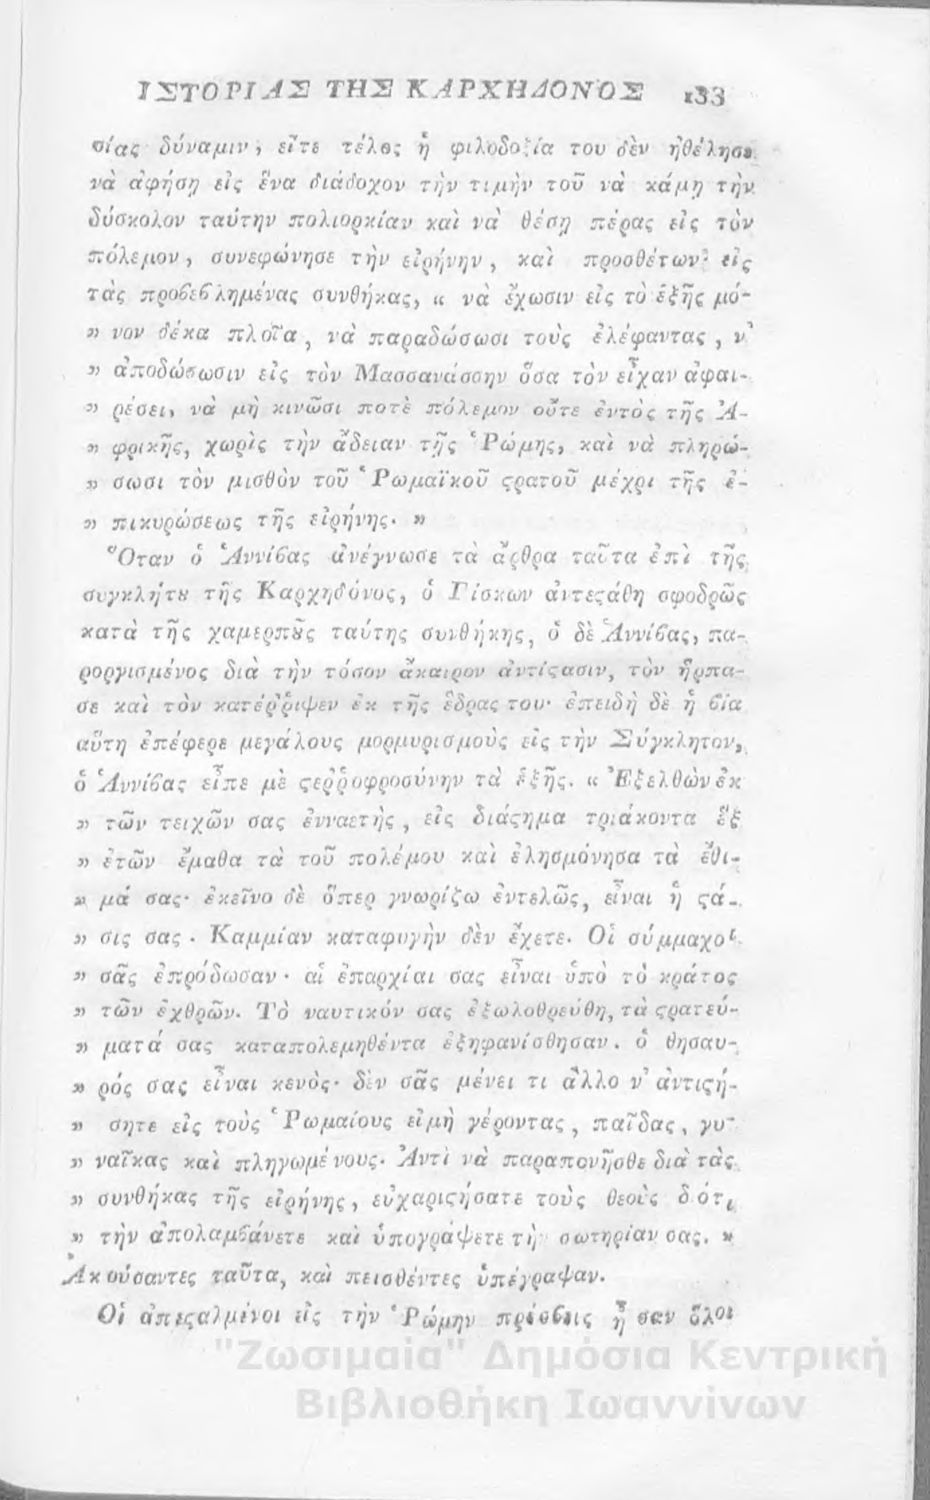 ΙΣΤΟΡΙΑΣ ΤΗΣ ΚΑΡΧΗΔΟΝΟΣ 133
σίας δύναμιν, εἴτε τέλος ἡ φιλοδοξία του δὲν ἠθέλησε
νὰ ἀφήσῃ εἰς ἕνα διάδοχον τὴν τιμὴν τοῦ νὰ κάμῃ τὴν
δύσκολον ταύτην πολιορκίαν καὶ νὰ θέσῃ πέρας εἰς τὸν
πόλεμον, συνεφώνησε τὴν εἰρήνην, καὶ προσθέτων εἰς
τὰς προβεβλημένας συνθήκας, « νὰ ἔχωσιν εἰς τὸ ἑξῆς μό-
» νον δέκα πλοῖα, νὰ παραδώσωσι τοὺς ἐλέφαντας, ν'
» ἀποδώσωσιν εἰς τὸν Μασσανάσσην ὅσα τὸν εἶχαν ἀφαι-
» ρέσει, νὰ μὴ κινῶσι ποτὲ πόλεμον οὔτε ἐντὸς τῆς Ἀ-
» φρικῆς, χωρὶς τὴν ἄδειαν τῆς Ῥώμης, καὶ νὰ πληρώ-
» σωσι τὸν μισθὸν τοῦ Ῥωμαϊκοῦ ϛρατοῦ μέχρι τῆς ἐ-
» πικυρώσεως τῆς εἰρήνης. »
Ὅταν ὁ Ἀννίβας ἀνέγνωσε τὰ ἄρθρα ταῦτα ἐπὶ τῆς
συγκλήτȣ τῆς Καρχηδόνος, ὁ Γίσκων ἀντεϛάθη σφοδρῶς
κατὰ τῆς χαμερπȣ͂ς ταύτης συνθήκης, ὁ δὲ Ἀννίβας, πα-
ροργισμένος διὰ τὴν τόσον ἄκαιρον ἀντίϛασιν, τὸν ἥρπα-
σε καὶ τὸν κατέῤῥιψεν ἐκ τῆς ἕδρας του· ἐπειδὴ δὲ ἡ βία
αὕτη ἐπέφερε μεγάλους μορμυρισμοὺς εἰς τὴν Σύγκλητον,
ὁ Ἀννίβας εἶπε μὲ ϛεῤῥοφροσύνην τὰ ἑξῆς. « Ἐξελθὼν ἐκ
» τῶν τειχῶν σας ἐνναετὴς, εἰς διάϛημα τριάκοντα ἓξ
» ἐτῶν ἔμαθα τὰ τοῦ πολέμου καὶ ἐλησμόνησα τὰ ἔθι-
» μά σας· ἐκεῖνο δὲ ὅπερ γνωρίζω ἐντελῶς, εἶναι ἡ ϛά-
» σις σας. Καμμίαν καταφυγὴν δὲν ἔχετε. Οἱ σύμμαχοι
» σᾶς ἐπρόδωσαν· αἱ ἐπαρχίαι σας εἶναι ὑπὸ τὸ κράτος
» τῶν ἐχθρῶν. Τὸ ναυτικόν σας ἐξωλοθρεύθη, τὰ ϛρατεύ-
» ματά σας καταπολεμηθέντα ἐξηφανίσθησαν. ὁ θησαυ-
» ρός σας εἶναι κενὸς· δὲν σᾶς μένει τι ἄλλο ν' ἀντιϛή-
» σητε εἰς τοὺς Ῥωμαίους εἰμὴ γέροντας, παῖδας, γυ-
» ναῖκας καὶ πληγωμένους. Ἀντὶ νὰ παραπονῆσθε διὰ τὰς
» συνθήκας τῆς εἰρήνης, εὐχαριϛήσατε τοὺς θεοὺς διότι
» τὴν ἀπολαμβάνετε καὶ ὑπογράψετε τὴν σωτηρίαν σας. »
Ἀκούσαντες ταῦτα, καὶ πεισθέντες ὑπέγραψαν.
Οἱ ἀπεϛαλμένοι εἰς τὴν Ῥώμην πρέσβεις ἦσαν ὅλοι
"Ζωσιμαία" Δημόσια Κεντρική
Βιβλιοθήκη Ιωαννίνων